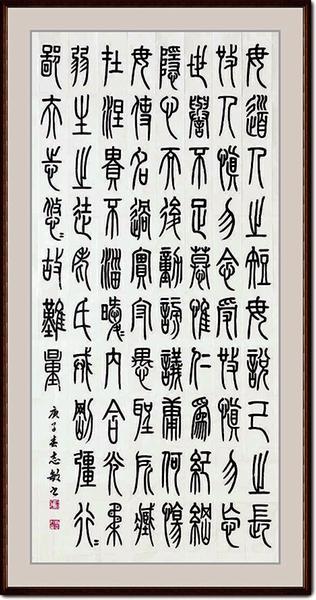 毋道人之短毋說己之長
施人慎勿念受施慎勿忘
世譽不足慕惟仁為紀綱
隱心而後動謗議庸何傷
毋使名過實守愚聖所臧
在涅貴不淄曖〻內含光柔
弱生之徒老氏戒剛彊行〻
鄙夫志悠〻故難量
庚子春志敏书